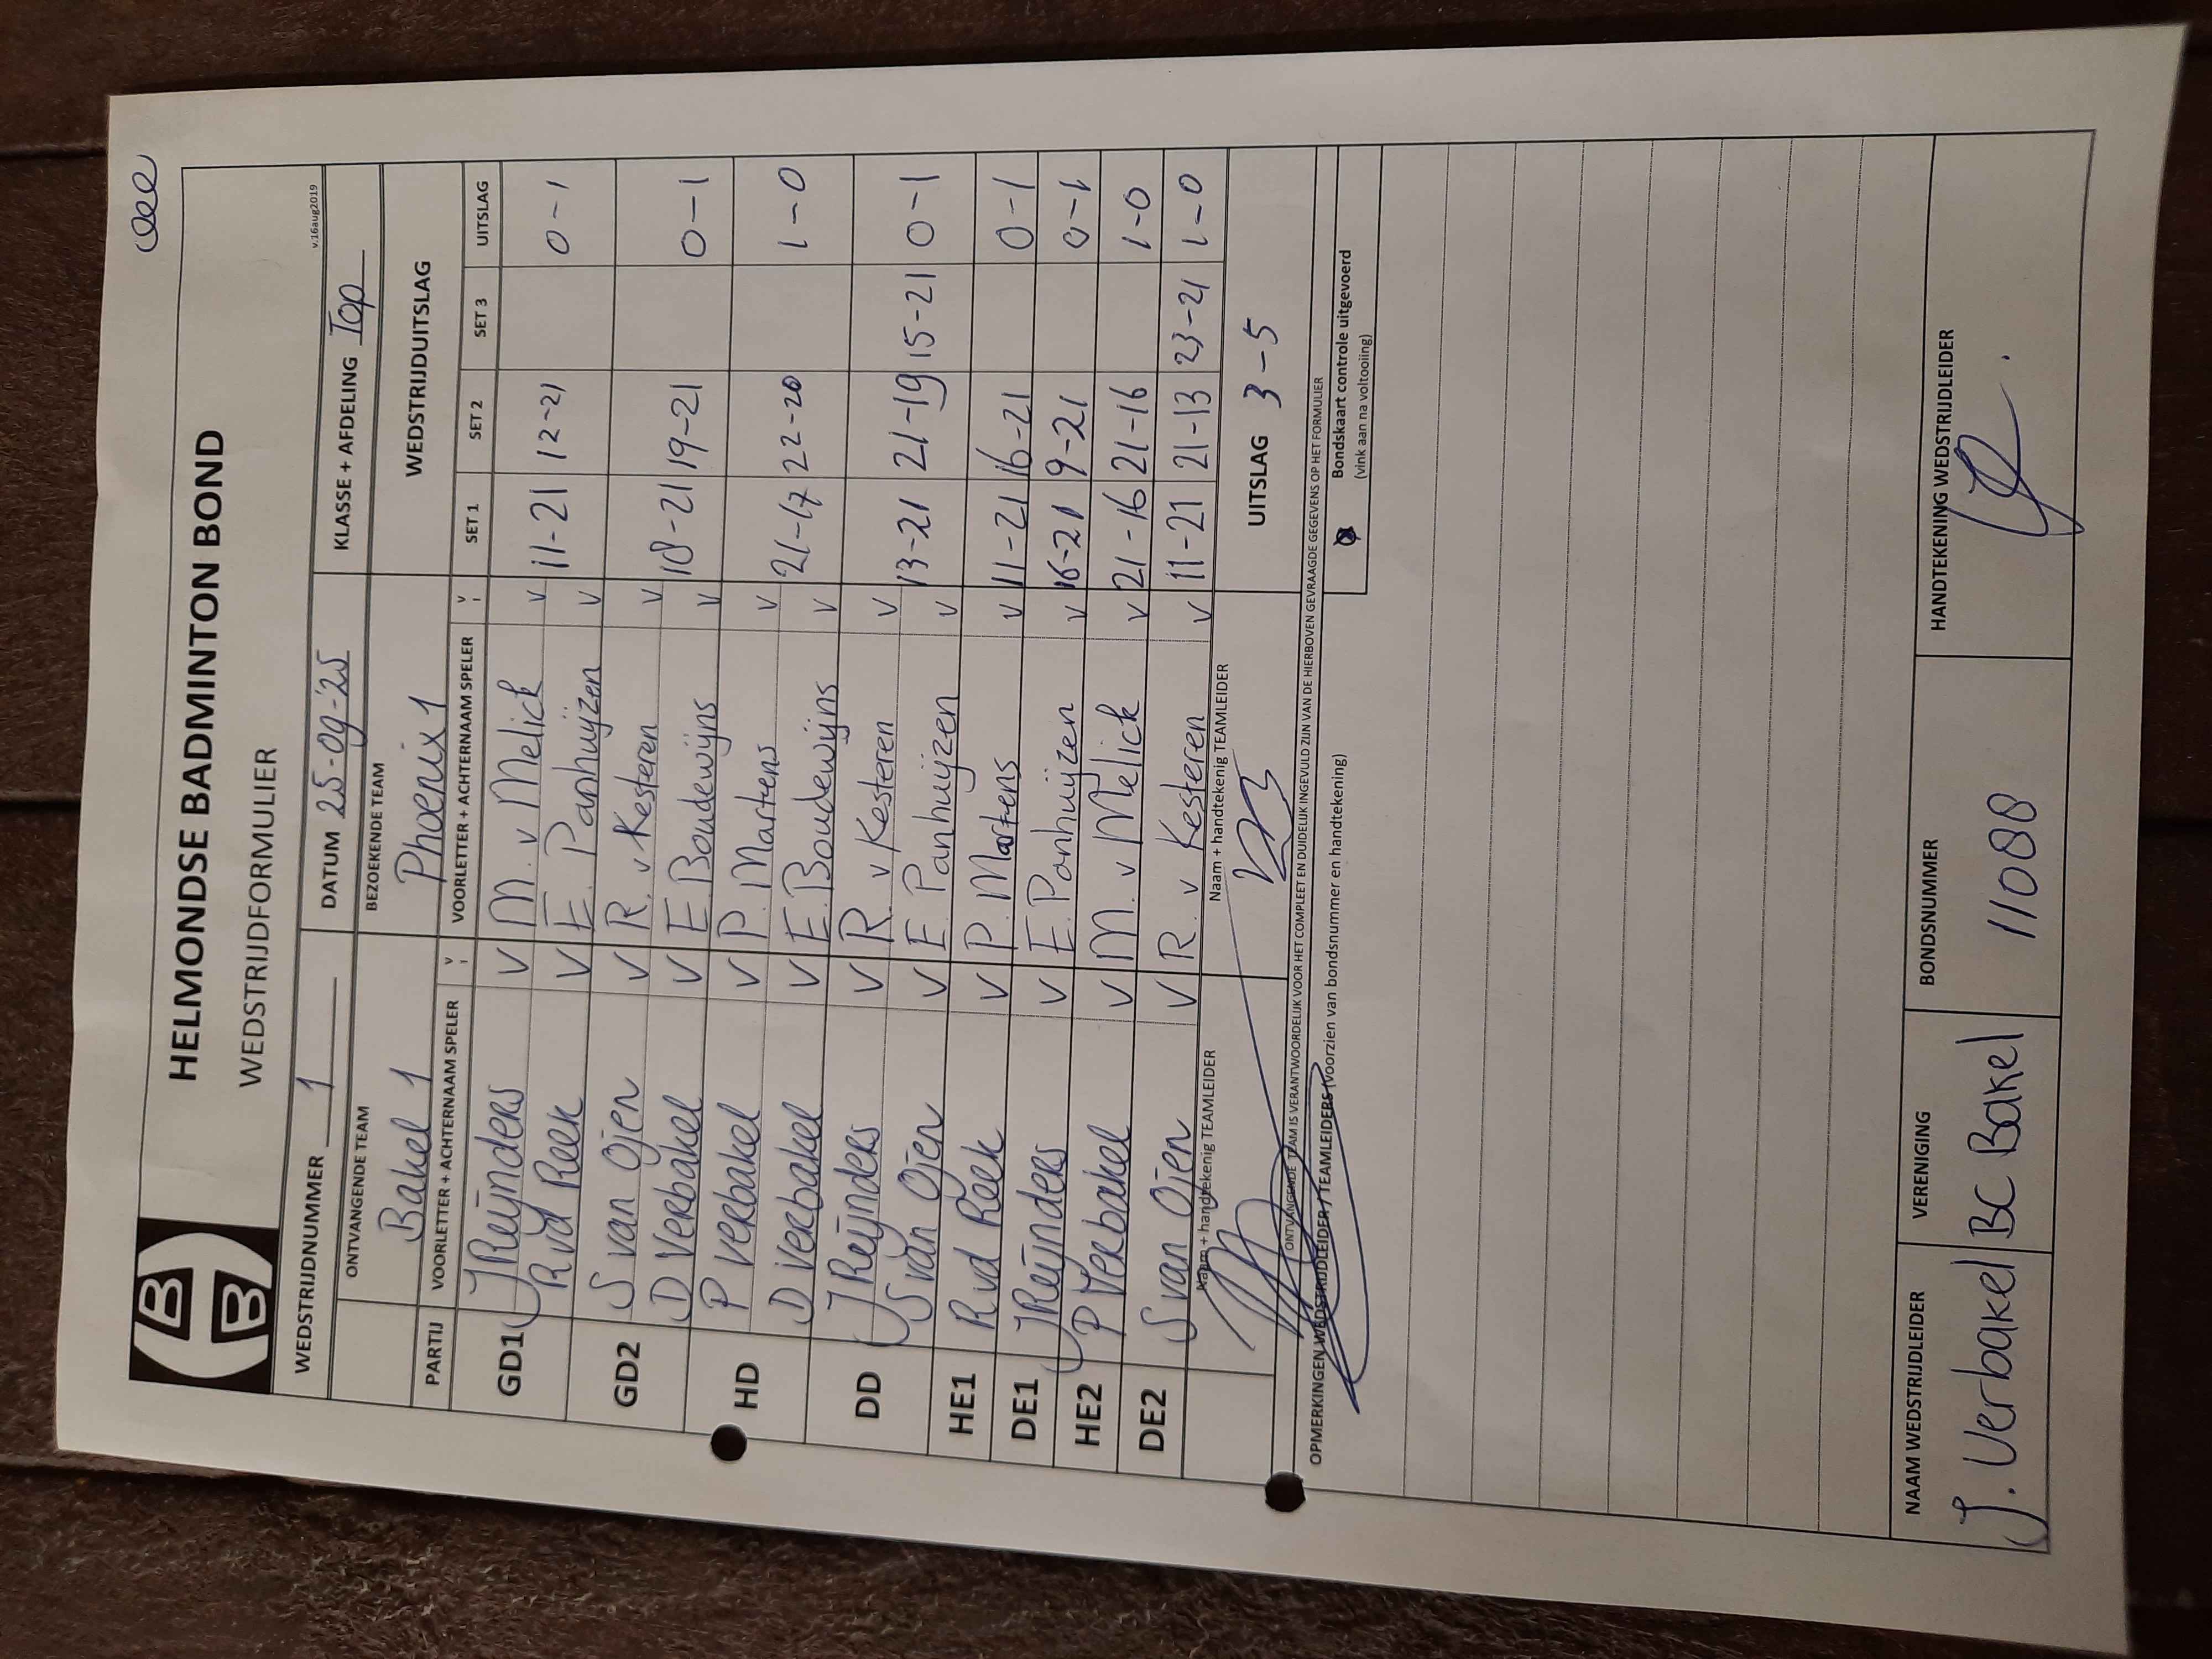 HELMONDSE BADMINTON BOND
WEDSTRIJDFORMULIER
v.16aug2019
WEDSTRIJDNUMMER 1 DATUM 25-09-'25 KLASSE + AFDELING Top
ONTVANGENDE TEAM BEZOEKENDE TEAM WEDSTRIJDUITSLAG
Bakel 1 Phoenix 1
PARTIJ VOORLETTER + ACHTERNAAM SPELER V VOORLETTER + ACHTERNAAM SPELER V SET 1 SET 2 SET 3 UITSLAG
GD1 J Reijnders V M. v Melick v 11-21 12-21 0-1
R vd Reek V E. Panhuijzen v
GD2 S van Ojen V R. v Kesteren v 18-21 19-21 0-1
D Verbakel V E. Boudewijns v
HD P Verbakel V P. Martens v 21-17 22-20 1-0
D Verbakel V E. Boudewijns v
DD J Reijnders V R. v Kesteren v 13-21 21-19 15-21 0-1
S van Ojen V E. Panhuijzen v
HE1 R vd Reek V P. Martens v 11-21 16-21 0-1
DE1 J Reijnders V E. Panhuijzen v 16-21 9-21 0-1
HE2 P Verbakel V M. v Melick v 21-16 21-16 1-0
DE2 S van Ojen V R. v Kesteren v 11-21 21-13 23-21 1-0
Naam + handtekenig TEAMLEIDER Naam + handtekenig TEAMLEIDER UITSLAG 3-5
ONTVANGENDE TEAM IS VERANTWOORDELIJK VOOR HET COMPLEET EN DUIDELIJK INGEVULD ZIJN VAN DE HIERBOVEN GEVRAAGDE GEGEVENS OP HET FORMULIER
OPMERKINGEN WEDSTRIJDLEIDER / TEAMLEIDERS (voorzien van bondsnummer en handtekening) Bondskaart controle uitgevoerd
(vink aan na voltooiing)
NAAM WEDSTRIJDLEIDER VERENIGING BONDSNUMMER HANDTEKENING WEDSTRIJDLEIDER
J. Verbakel BC Bakel 11088